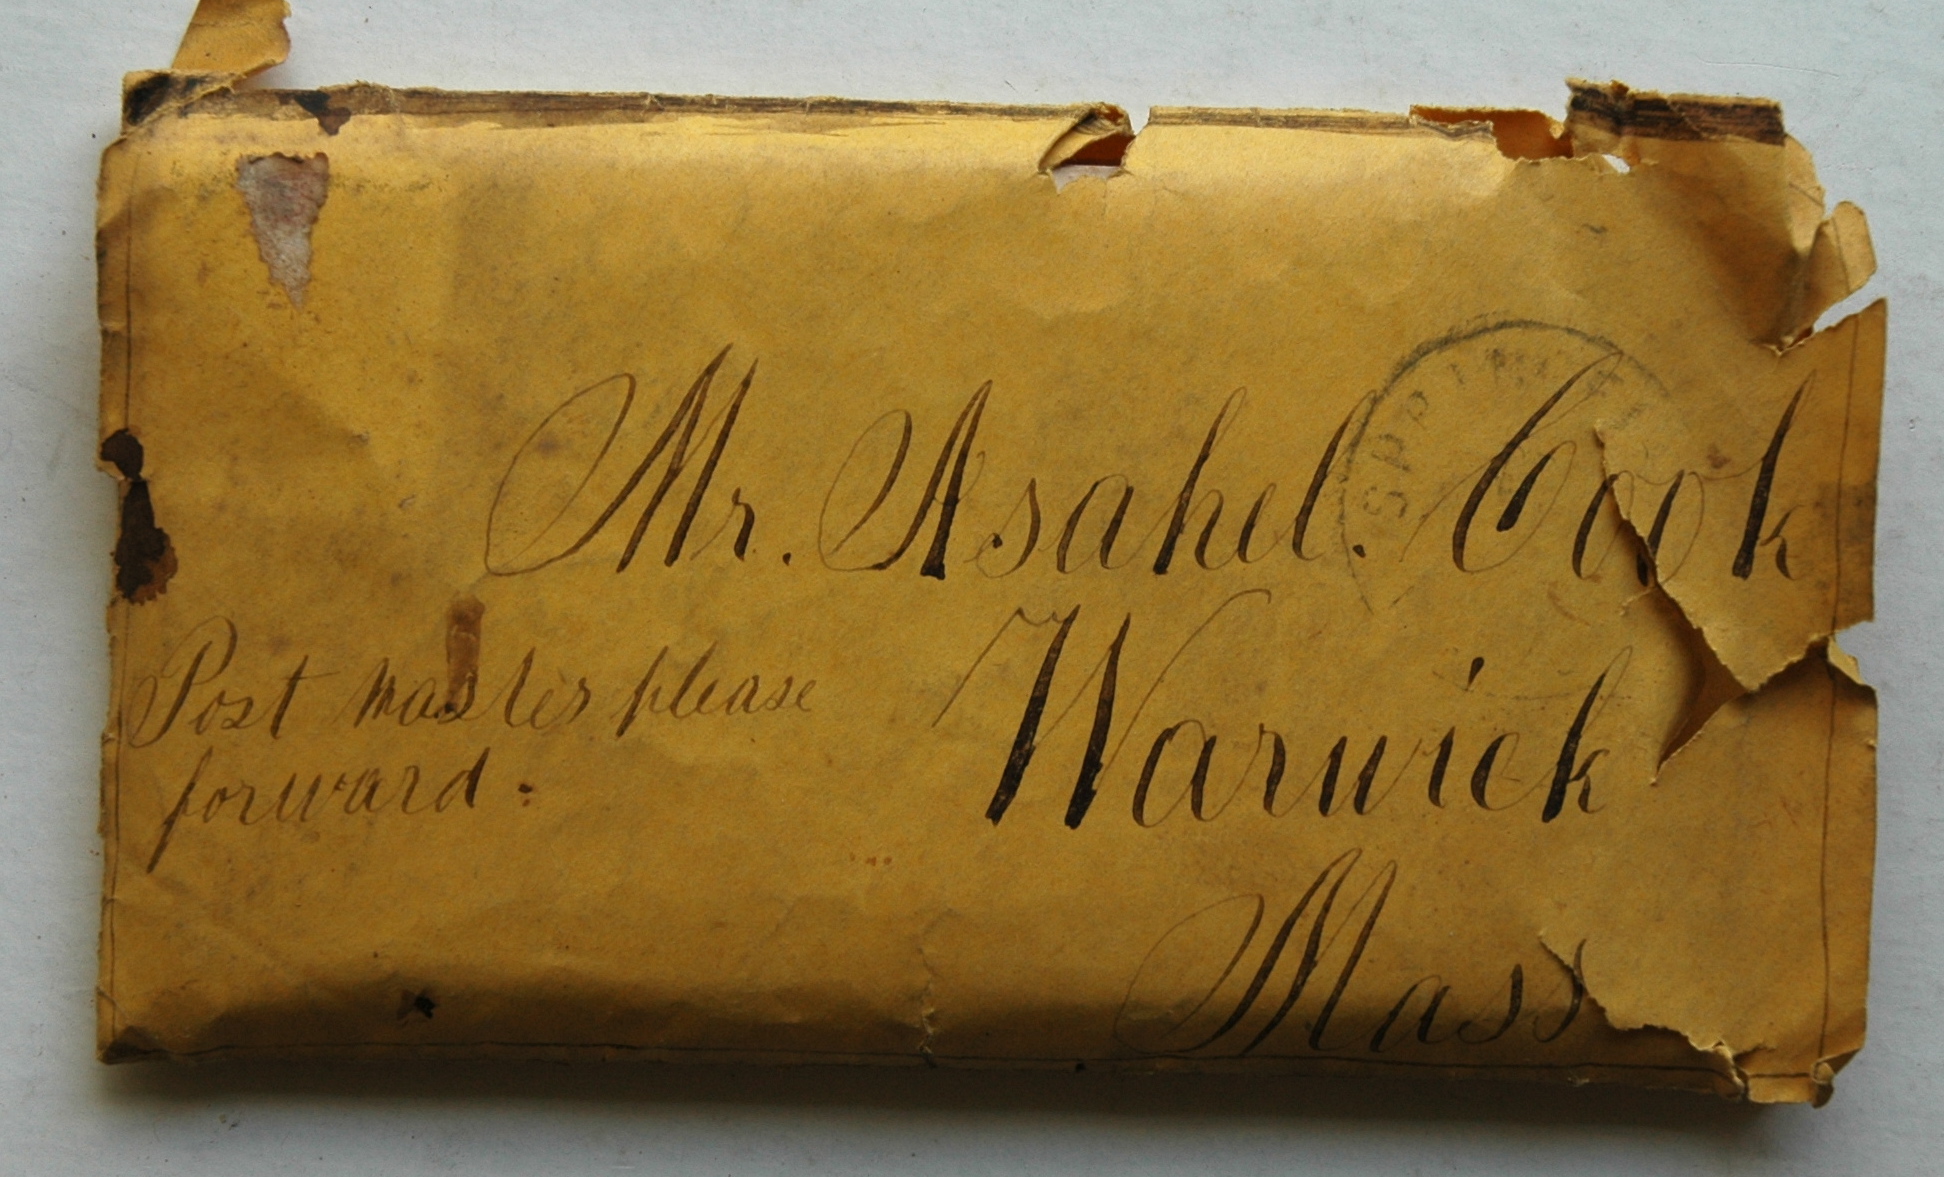 Mr. Asahel. Cook
Warwick
Mass
Post master please
forward.